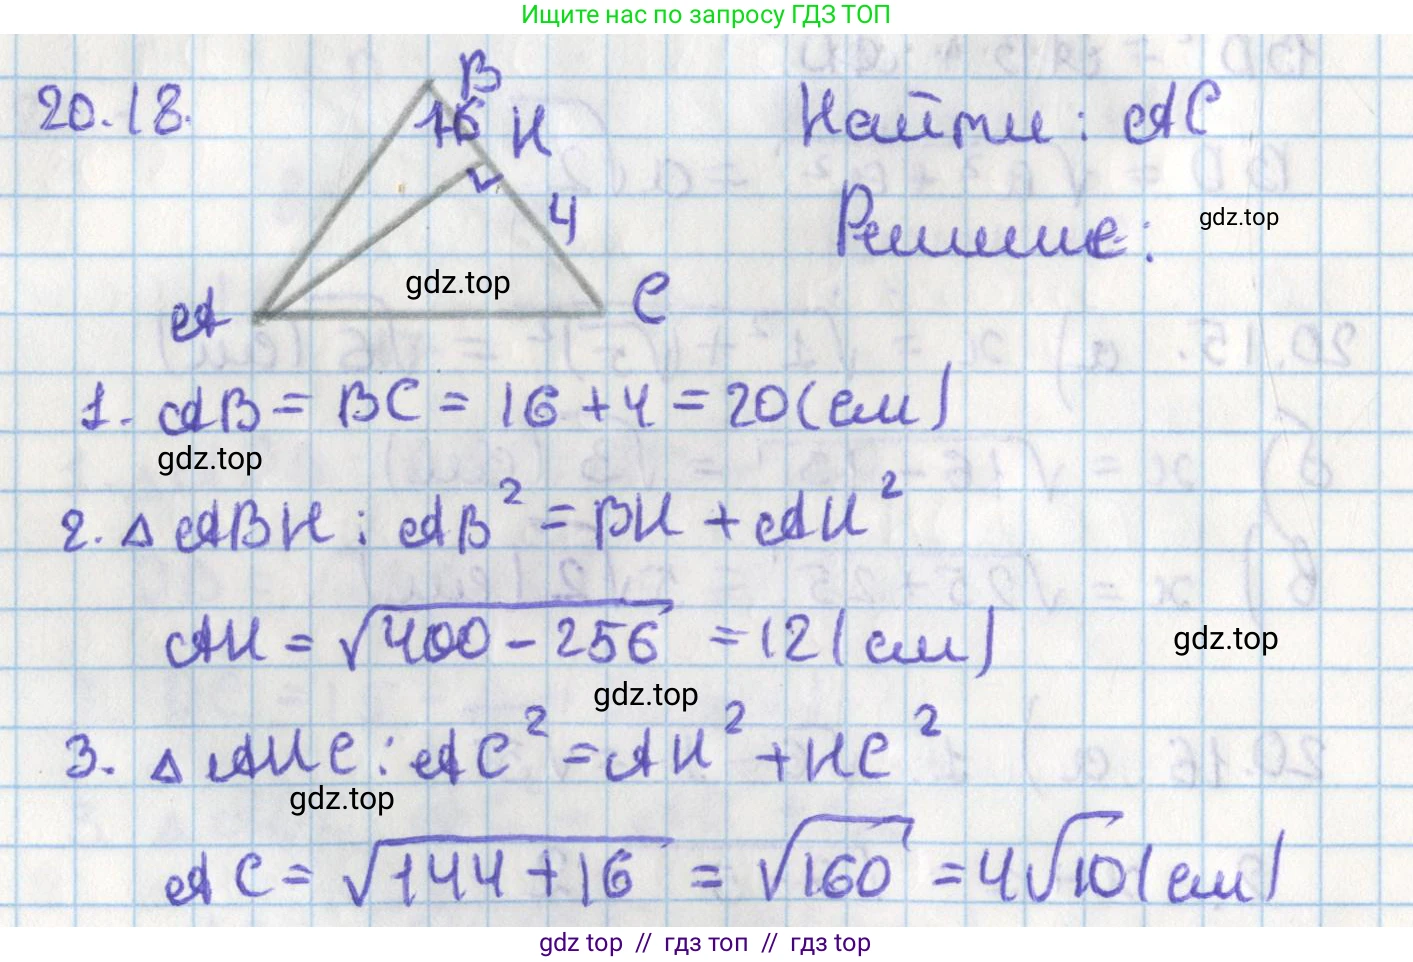 Ищите нас по запросу ГДЗ ТОП
20.18.
B
16 H
4
A
C
Найти: AC
Решение:
gdz.top
gdz.top
1. AB = BC = 16 + 4 = 20 (см)
gdz.top
2. △ ABH : AB² = BH + AH²
AH = √400 - 256 = 12 (см)
gdz.top
gdz.top
3. △ AHC : AC² = AH² + HC²
gdz.top
AC = √144 + 16 = √160 = 4√10 (см)
gdz top // гдз топ // гдз top